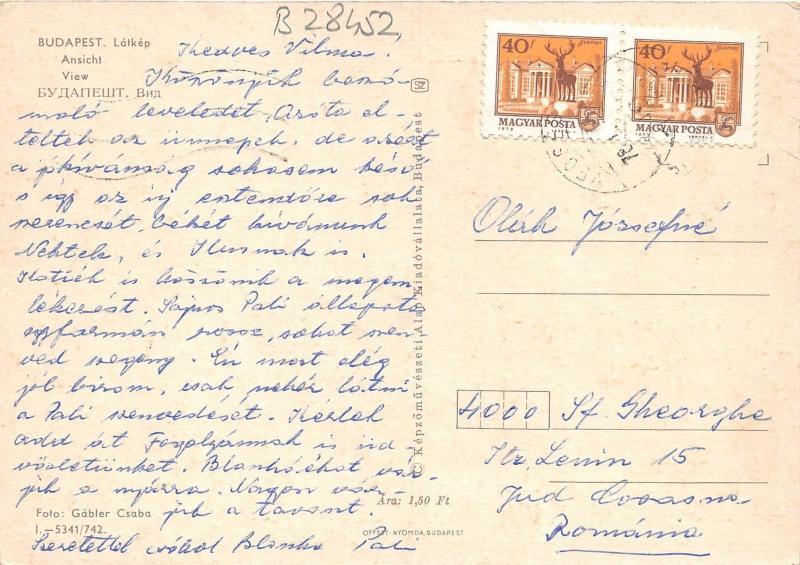 B 28452
BUDAPEST. Látkép
Ansicht
View
БУДАПЕШТ. Вид
Kedves Vilma!
Köszönjük beszá-
moló leveledet. Azóta el-
teltek az ünnepek, de azért
a jókívánság sohasem késő
s így az új esztendőre sok
szerencsét, békét kívánunk
Nektek, és Ilusnak is.
is köszönik a megem-
lékezést. Sajnos Pali állapota
egyformán rossz, sokat szen-
ved szegény. Én most elég
jól bírom, csak nehéz látni
a Pali szenvedését. Kérlek
add át Fogolyánnak is üd-
vözletünket. Blankáékat vár-
juk a nyárra. Nagyon vár-
juk a tavaszt.
Szeretettel csókol Blanka Pali
Foto: Gábler Csaba
I.—5341/742.
Ára: 1,50 Ft
OFFSET-NYOMDA, BUDAPEST
SZ
© Képzőművészeti Alap Kiadóvállalata, Budapest
40f
MAGYAR POSTA
40f
MAGYAR POSTA
Oláh Józsefné
4000 Sf. Gheorghe
Str. Lenin 15
Jud Covasna
Románia